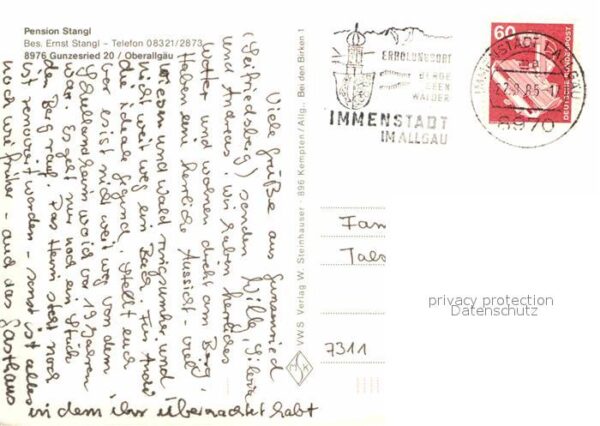 Pension Stangl
Bes. Ernst Stangl - Telefon 08321/2873
8976 Gunzesried 20 / Oberallgäu
Viele Grüße aus Gunzesried
(Seifriedsberg) senden Willy, Silvia
und Andreas. Wir haben herrliches
Wetter und wohnen direkt am Berg,
haben eine herrliche Aussicht - viel
Wiesen und Wald ringsumher und
nicht weit weg ein Bach. Für André
die ideale Gegend. Stellt euch
vor es ist nicht weit weg von dem
wo ich vor 19 Jahren
war. Es geht nur noch ein Stück
den Berg rauf. Das Heim steht noch
ist renoviert worden - sonst ist alles
noch wie früher - auch das Gasthaus
in dem ihr übernachtet habt
VWS Verlag W. Steinhauser · 896 Kempten / Allg., Bei den Birken 1
ERHOLUNGSORT
BERGE
SEEN
WÄLDER
IMMENSTADT
IM ALLGÄU
IMMENSTADT I. ALLGÄU
8970
60
DEUTSCHE BUNDESPOST
Fam
Tals
7311
privacy protection
Datenschutz